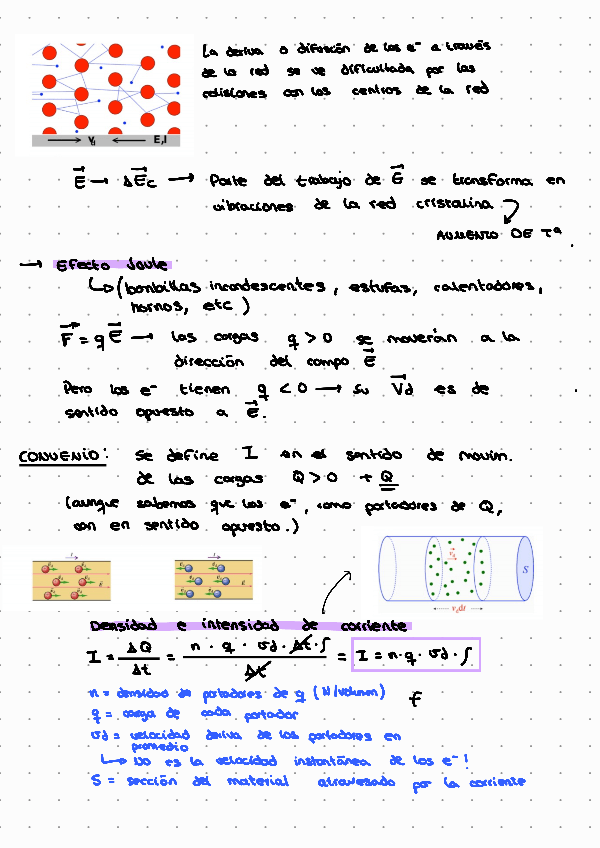 La deriva o difusión de los e⁻ a través
de la red se ve dificultada por las
colisiones con los centros de la red
v_d E, I
E→ → ΔE→c → Parte del trabajo de E→ se transforma en
vibraciones de la red cristalina
AUMENTO DE Tª
→ Efecto Joule
↳ (bombillas incandescentes, estufas, calentadores,
hornos, etc)
F→ = q E→ → las cargas q > 0 se moverán a la
dirección del campo E→
Pero los e⁻ tienen q < 0 → su V→d es de
sentido opuesto a E→.
CONVENIO: Se define I en el sentido de movim.
de las cargas Q > 0 + Q
(aunque sabemos que los e⁻, como portadores de Q,
van en sentido opuesto.)
S
v_d
v_d dt
Densidad e intensidad de corriente
I = ΔQ/Δt = n · q · vd · Δt · S / Δt = I = n · q · vd · S
n = densidad de portadores de q (N/volumen) f
q = carga de cada portador
vd = velocidad deriva de los portadores en
promedio
↳ No es la velocidad instantánea de los e⁻!
S = sección del material atravesado por la corriente